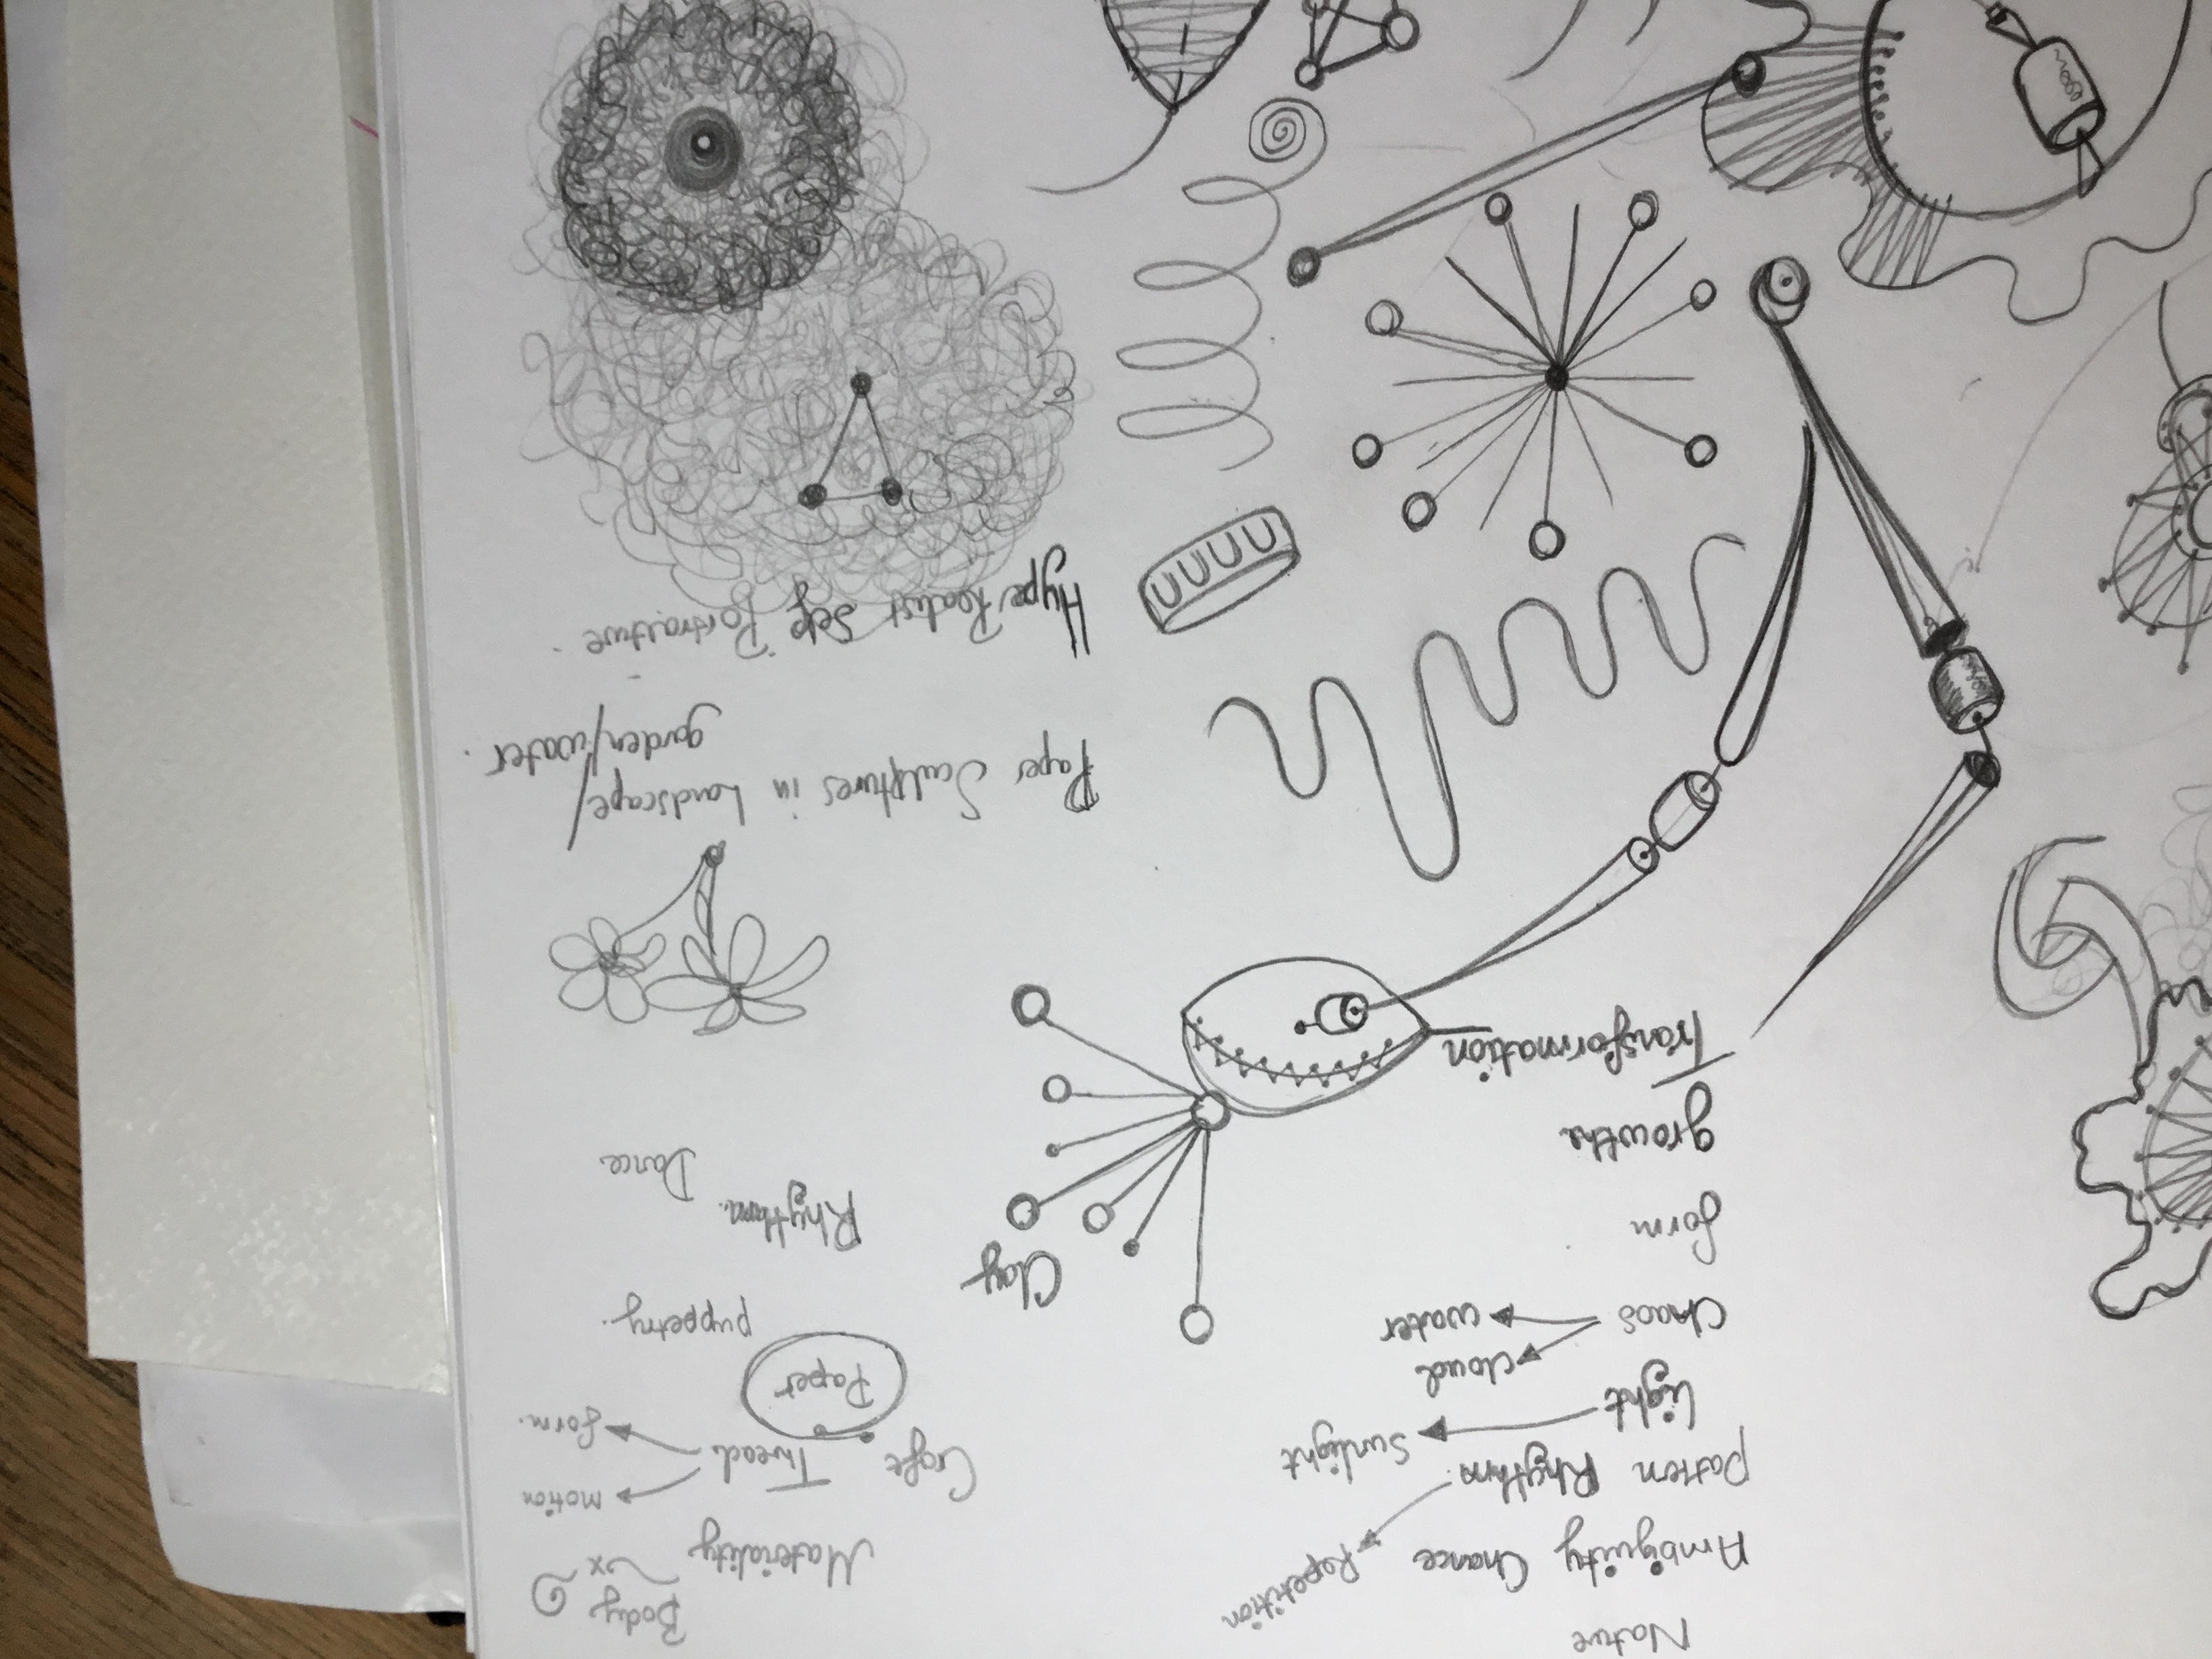 Nature
Ambiguity Chance
Repetition
Patten Rhythm
Sunlight
light
cloud
Chaos
water
form
growthe
Transformation
Body
x
Materiality
motion
Craft Thread
form.
Paper
puppetry.
Clay
Rhythm.
Dance
Paper Sculptures in Landscape/
garden/water.
HyperRealist Self Portraiture